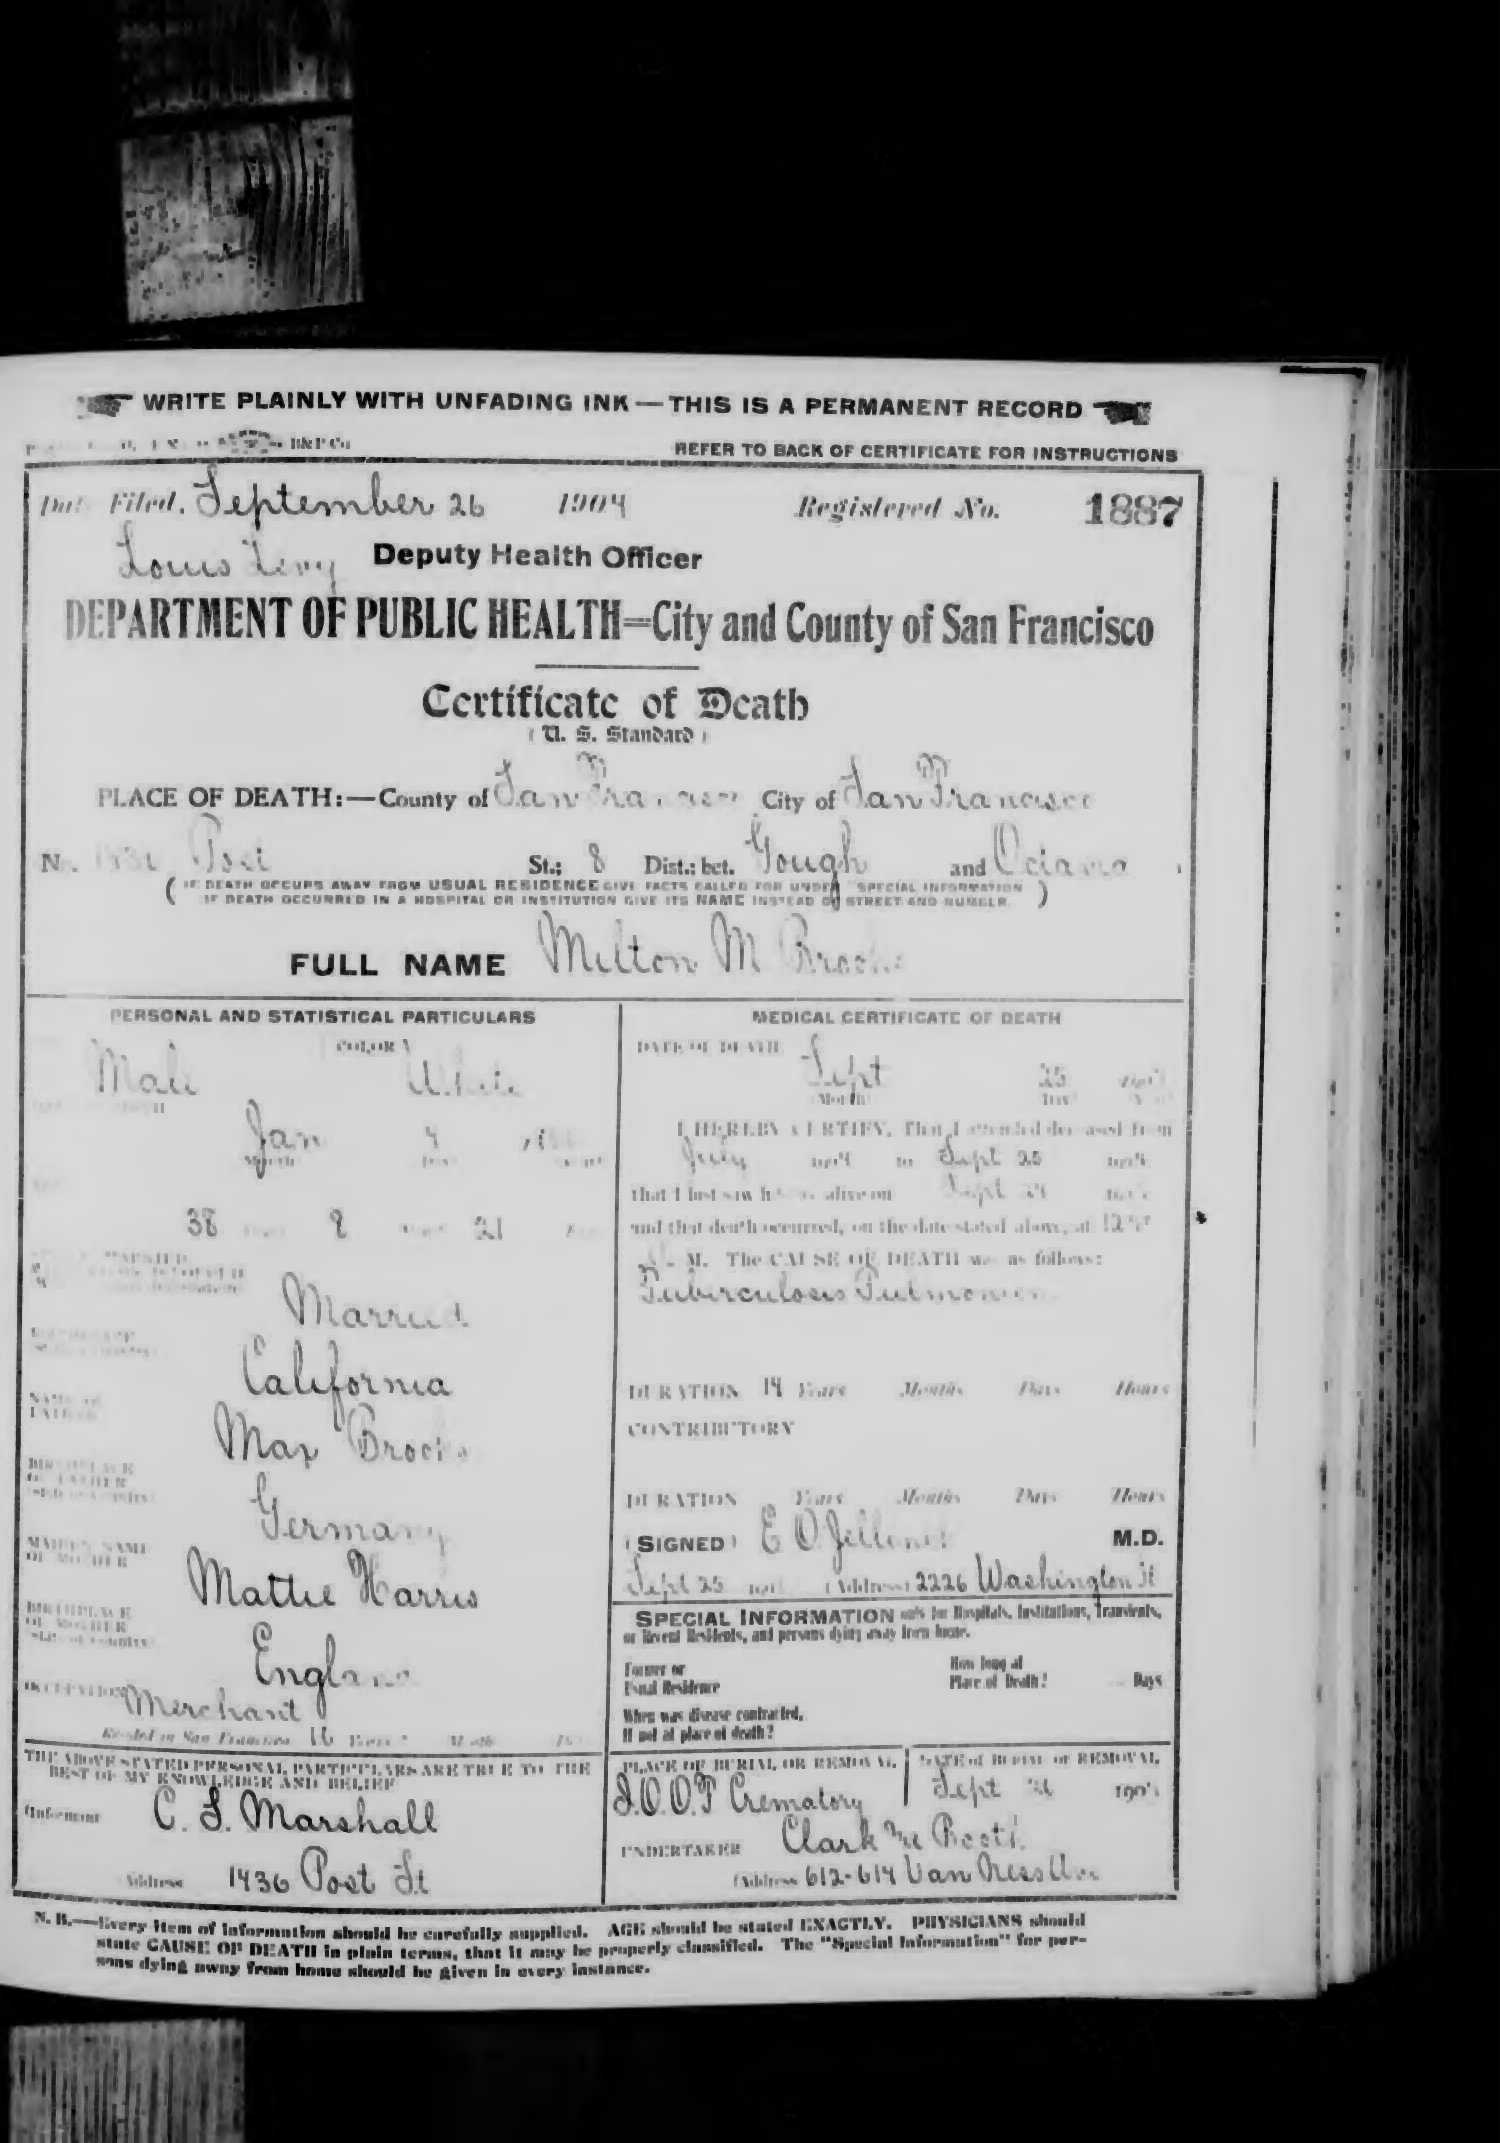 WRITE PLAINLY WITH UNFADING INK — THIS IS A PERMANENT RECORD
REFER TO BACK OF CERTIFICATE FOR INSTRUCTIONS
Date Filed, September 26 1904 Registered No. 1887
Louis Levy Deputy Health Officer
DEPARTMENT OF PUBLIC HEALTH=City and County of San Francisco
Certificate of Death
(U. S. Standard)
PLACE OF DEATH:—County of San Francisco City of San Francisco
No. Post St.; 8 Dist.; bet. Gough and Octavia
(IF DEATH OCCURS AWAY FROM USUAL RESIDENCE GIVE FACTS CALLED FOR UNDER "SPECIAL INFORMATION
IF DEATH OCCURRED IN A HOSPITAL OR INSTITUTION GIVE ITS NAME INSTEAD OF STREET AND NUMBER.)
FULL NAME Milton M Brooks
PERSONAL AND STATISTICAL PARTICULARS
COLOR
Male White
Jan 4
Month Day
38 8 21
Married
California
NAME OF
FATHER
Max Brooks
BIRTHPLACE
OF FATHER
(State or country)
Germany
MAIDEN NAME
OF MOTHER
Mattie Harris
BIRTHPLACE
OF MOTHER
(State or country)
England
OCCUPATION Merchant
Resided in San Francisco Years Months
THE ABOVE STATED PERSONAL PARTICULARS ARE TRUE TO THE
BEST OF MY KNOWLEDGE AND BELIEF
(Informant C. S. Marshall
Address 1436 Post St
MEDICAL CERTIFICATE OF DEATH
DATE OF DEATH
Sept 25
(Month) (Day)
I HEREBY CERTIFY, That I attended deceased from
July 1904 to Sept 25 1904
that I last saw h alive on Sept 24
and that death occurred, on the date stated above, at
M. The CAUSE OF DEATH was as follows:
Tuberculosis Pulmonum
DURATION 14 Years Months Days Hours
CONTRIBUTORY
DURATION Years Months Days Hours
(SIGNED) E O Jellinek M.D.
Sept 25 (Address) 2226 Washington St
SPECIAL INFORMATION only for Hospitals, Institutions, Transients,
or Recent Residents, and persons dying away from home.
Former or
Usual Residence
How long at
Place of Death? Days
When was disease contracted,
If not at place of death?
PLACE OF BURIAL OR REMOVAL
I.O.O.F Crematory
DATE of BURIAL or REMOVAL
Sept 26 1904
UNDERTAKER Clark
(Address 612-614 Van Ness Ave
N. B.—Every item of information should be carefully supplied. AGE should be stated EXACTLY. PHYSICIANS should
state CAUSE OF DEATH in plain terms, that it may be properly classified. The "Special Information" for per-
sons dying away from home should be given in every instance.